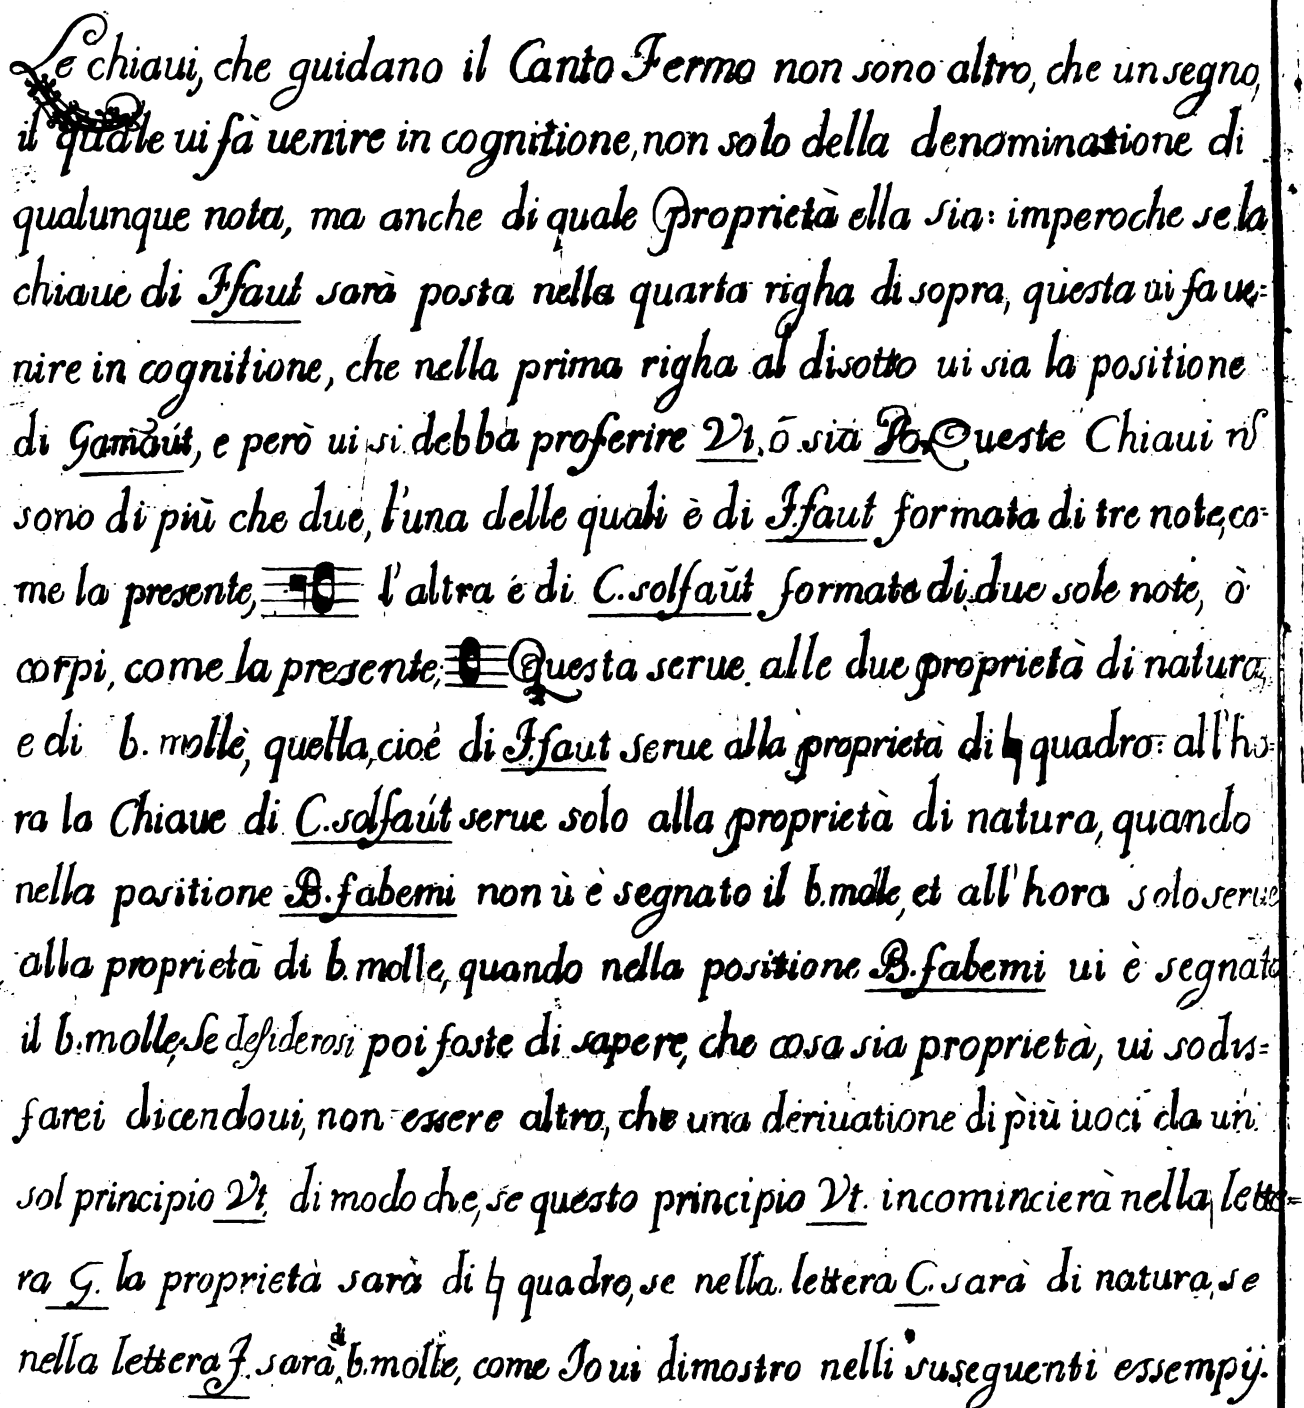 Le chiaui, che guidano il Canto Fermo non sono altro, che un segno,
il quale ui fà uenire in cognitione, non solo della denominatione di
qualunque nota, ma anche di quale Proprietà ella sia: imperoche se la
chiaue di Ffaut sarà posta nella quarta righa di sopra, questa ui fa ue=
nire in cognitione, che nella prima righa al disotto ui sia la positione
di Gamaút, e però ui si debba proferire Vt, ò sia Do. Queste Chiaui nõ
sono di più che due, l'una delle quali è di F.faut formata di tre note, co=
me la presente, l'altra é di C.solfaút formata di due sole note, ò
corpi, come la presente; Questa serue alle due proprietà di natura,
e di b. molle, quella, cioè di F.faut serue alla proprietà di ♮ quadro: all'ho=
ra la Chiaue di C.solfaút serue solo alla proprietà di natura, quando
nella positione B.fabemi non ù è segnato il b.molle, et all'hora solo serue
alla proprietà di b.molle, quando nella positione B.fabemi ui è segnato
il b.molle. Se desiderosi poi foste di sapere, che cosa sia proprietà, ui sodis=
farei dicendoui, non essere altro, che una deriuatione di più uoci da un
sol principio Vt, di modo che, se questo principio Vt. incomincierà nella lette=
ra G. la proprietà sarà di ♮ quadro, se nella lettera C. sarà di natura, se
nella lettera F. sarà di b.molle, come Io ui dimostro nelli suseguenti essempij.